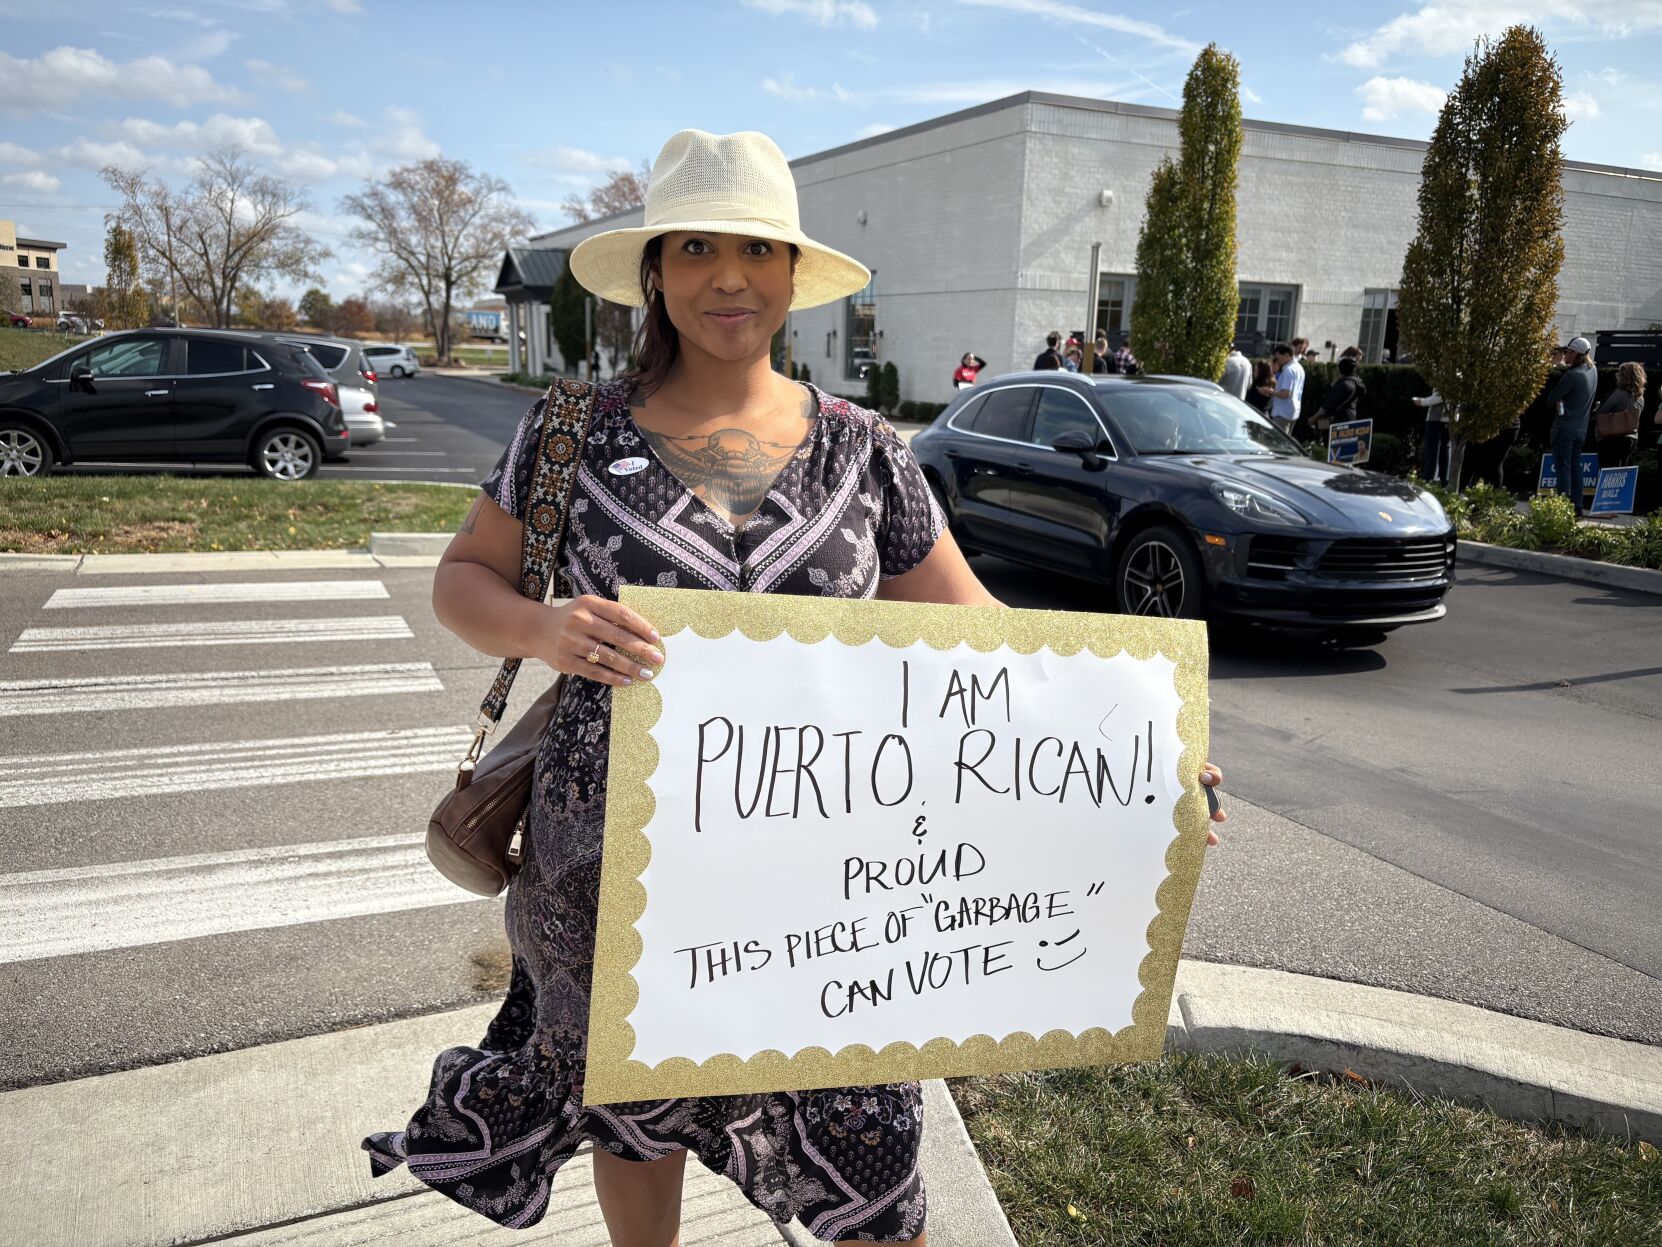 I AM
PUERTO RICAN!
&
PROUD
THIS PIECE OF "GARBAGE"
CAN VOTE :)
I Voted
HARRIS
WALZ